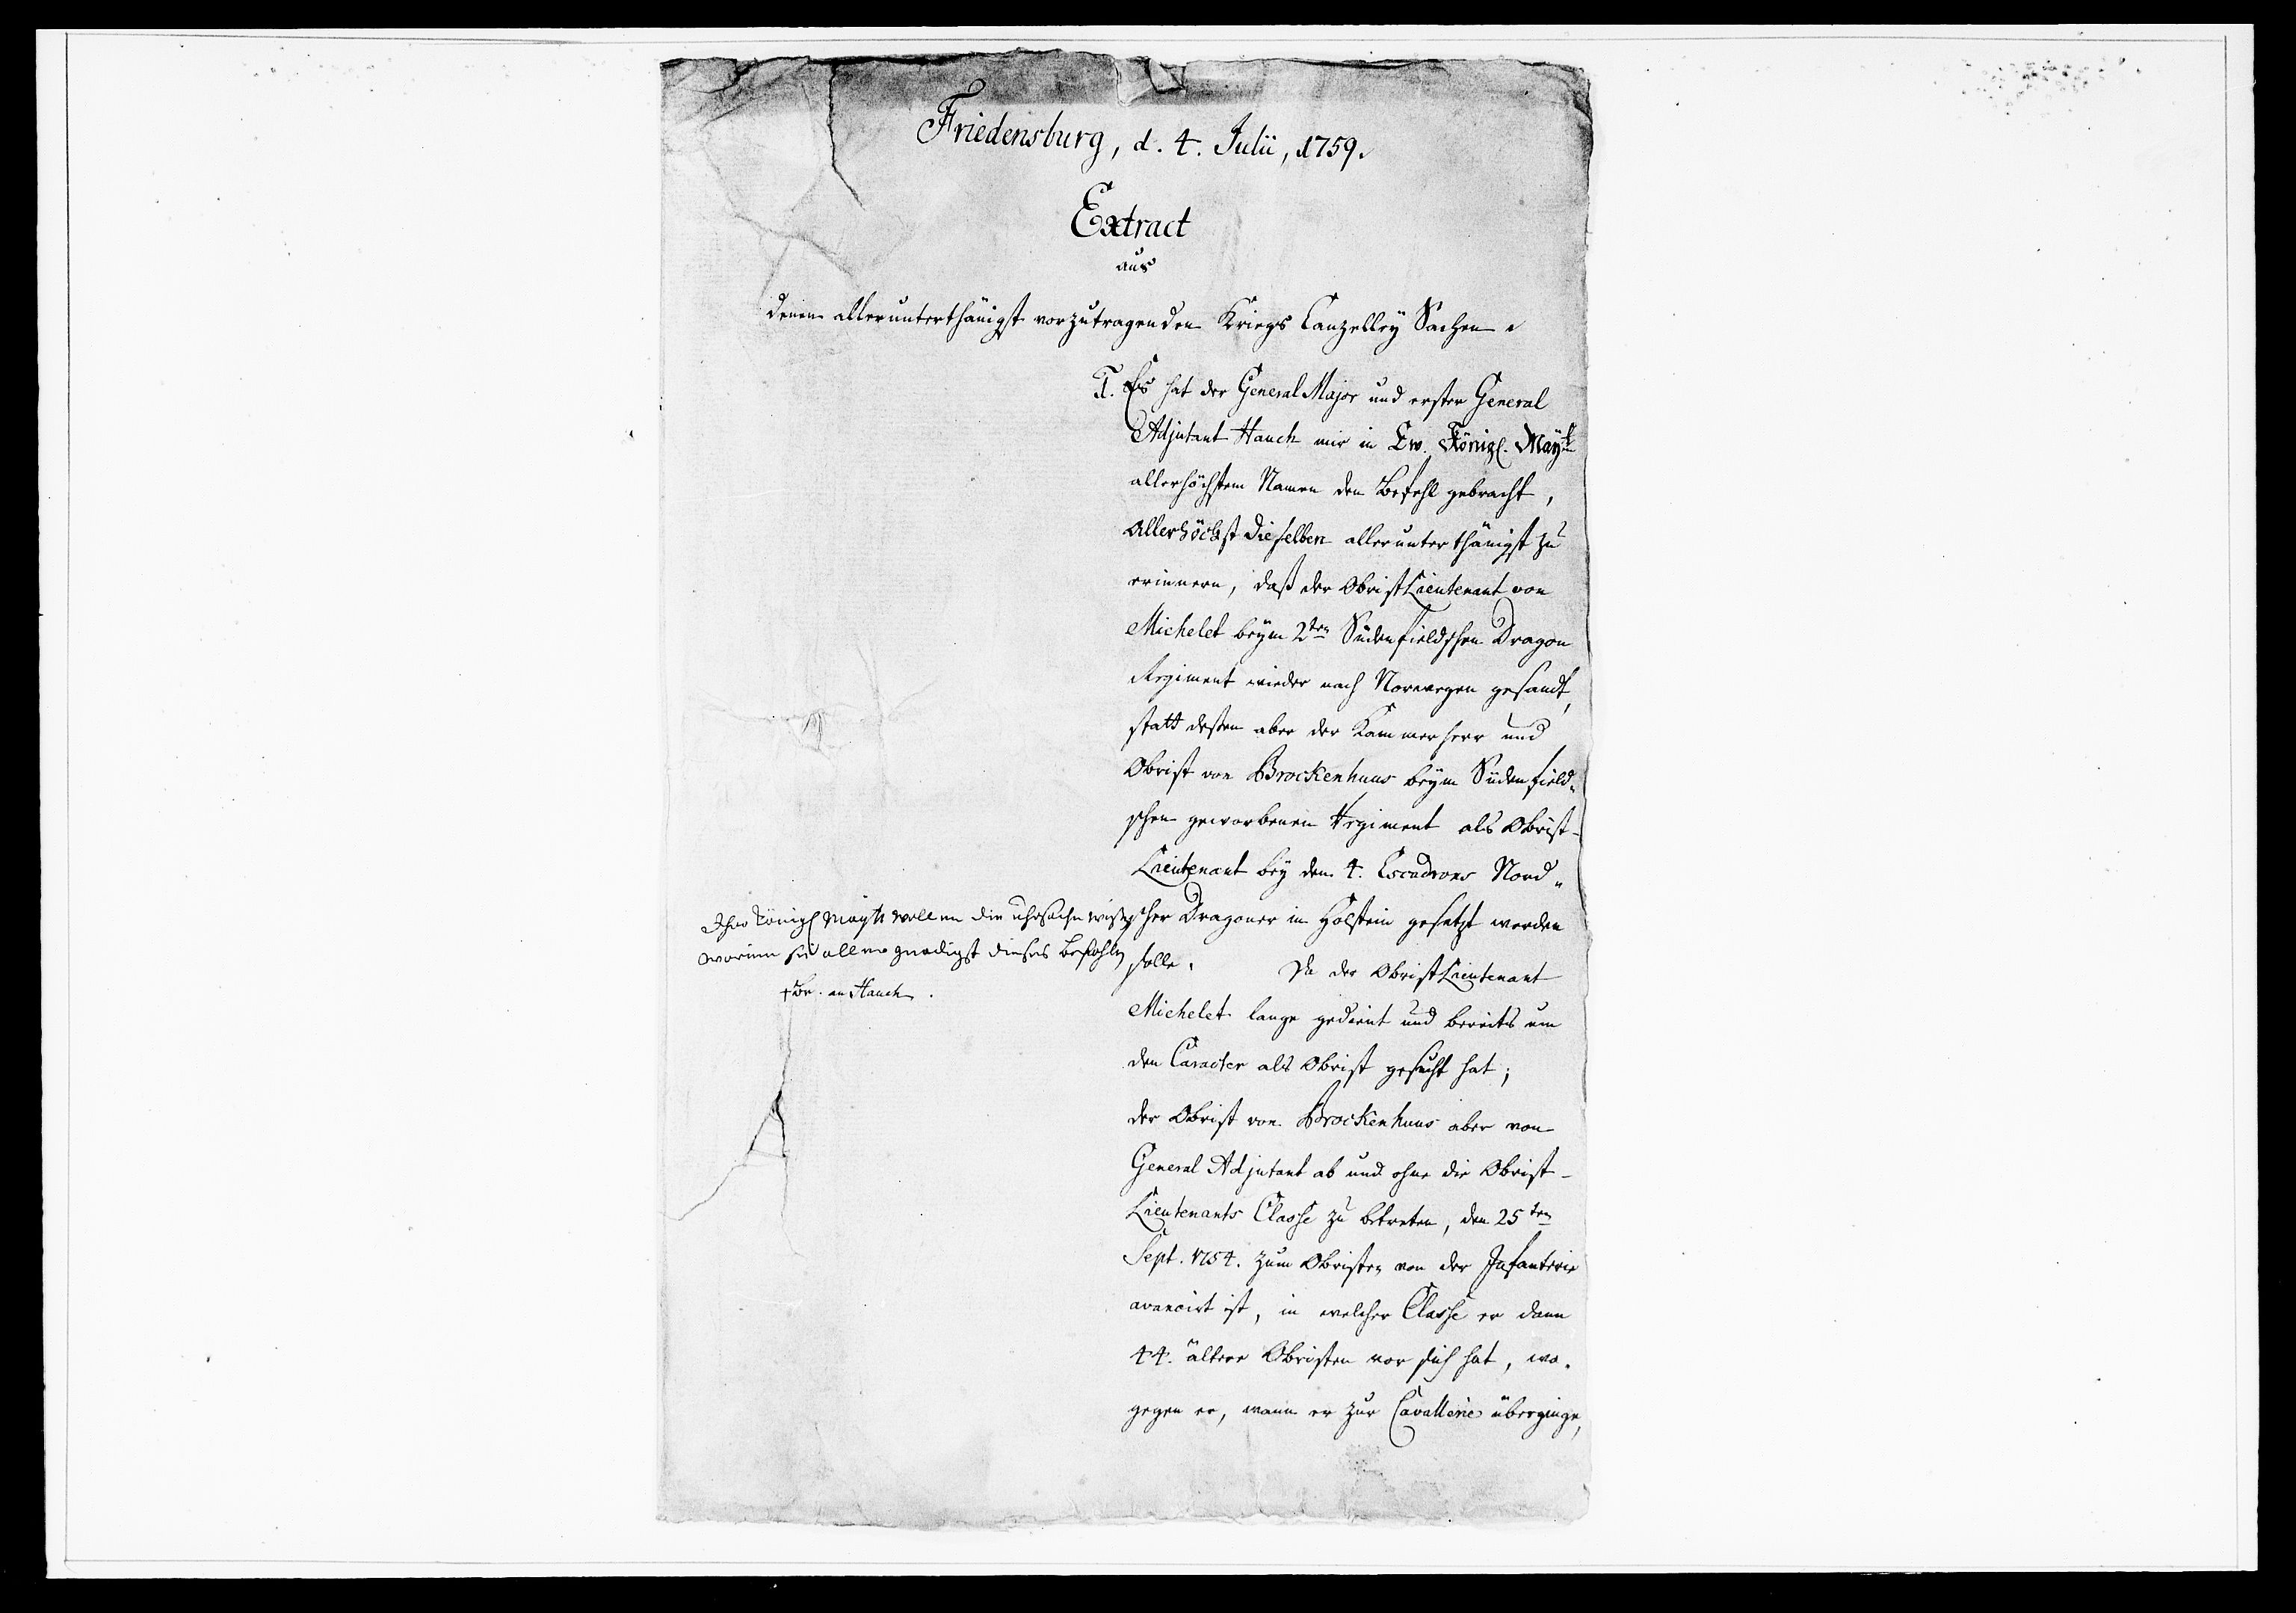 Friedensburg, d. 4. Julii, 1759.
Extract
aus
denen allerunterthänigst vorzutragenden Kriegs Canzelley Sachen.
1. Es hat der General Major und erster General
Adjutant Hauch mir in Ew. Königl. Mayt.
allerhöchstem Namen den Befehl gebracht,
Allerhöchst dieselben allerunterthänigst zu
erinnern, daß der Obrist Lieutenant von
Michelet beym 2ten Südenfieldschen Dragon
Regiment wieder nach Norwegen gesandt,
statt deßen aber der Kammerherr und
Obrist von Brockenhuus beym Südenfield-
schen geworbenen Regiment als Obrist-
Lieutenant bey den 4. Escadrons Nord-
scher Dragoner in Holstein gesetzt werden
solle. Da der Obrist Lieutenant
Michelet lange gedient und bereits um
den Caracter als Obrist gesucht hat;
der Obrist von Brockenhuus aber von
General Adjutant ab und ohne die Obrist-
Lieutenants Classe zu betreten, den 25ten
Sept. 1754. zum Obristen von der Infanterie
avancirt ist, in welcher Classe er dann
44. ältere Obristen vor sich hat, wo-
gegen er, wann er zur Cavallerie überginge,
Ihro Königl Mayt wollen die uhrsache wißen
warum sie allergnedigst dieses befohlen
+ Br. an Hauch.